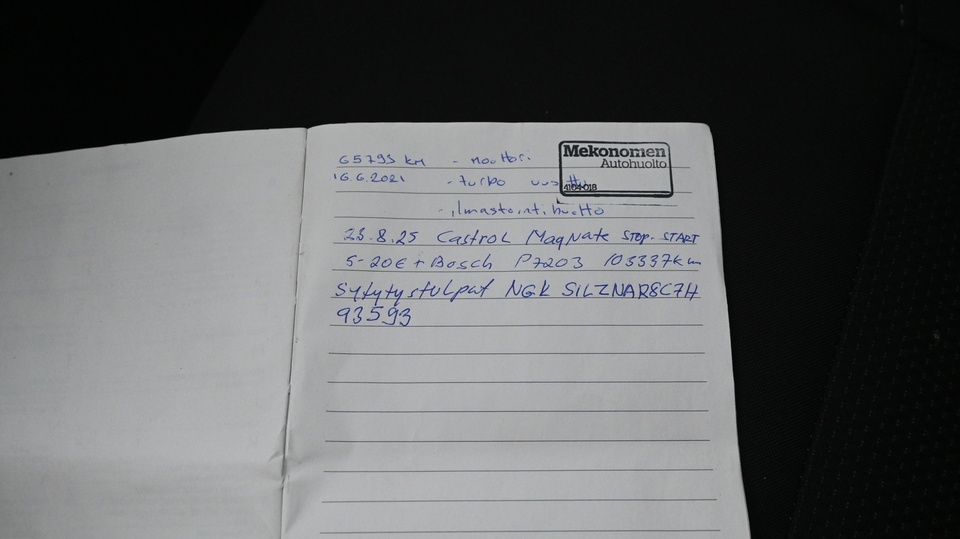 65793 km - moottori
Mekonomen
Autohuolto
16.6.2021 - turbo uusittu
4104018
- ilmastointihuolto
23.8.25 Castrol Magnate STOP-START
5-20E + Bosch P7203 103337km
Sytytystulpat NGK SILZNAR8C7H
93593